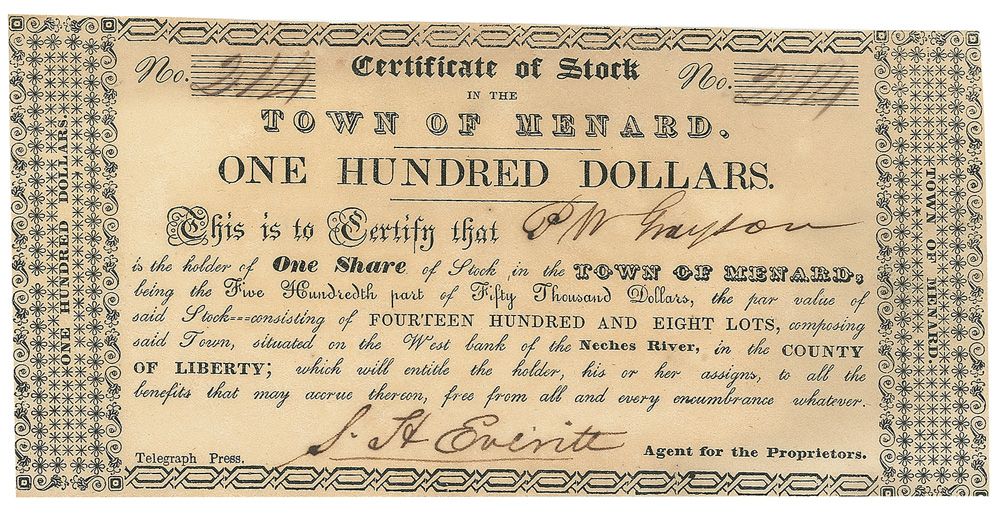 No. 214 Certificate of Stock No. 214
IN THE
TOWN OF MENARD.
ONE HUNDRED DOLLARS.
This is to Certify that P W Grayson
is the holder of One Share of Stock in the TOWN OF MENARD,
being the Five Hundredth part of Fifty Thousand Dollars, the par value of
said Stock===consisting of FOURTEEN HUNDRED AND EIGHT LOTS, composing
said Town, situated on the West bank of the Neches River, in the COUNTY
OF LIBERTY; which will entitle the holder, his or her assigns, to all the
benefits that may accrue thereon, free from all and every encumbrance whatever.
S. H Everitt
Telegraph Press. Agent for the Proprietors.
ONE HUNDRED DOLLARS.
TOWN OF MENARD.